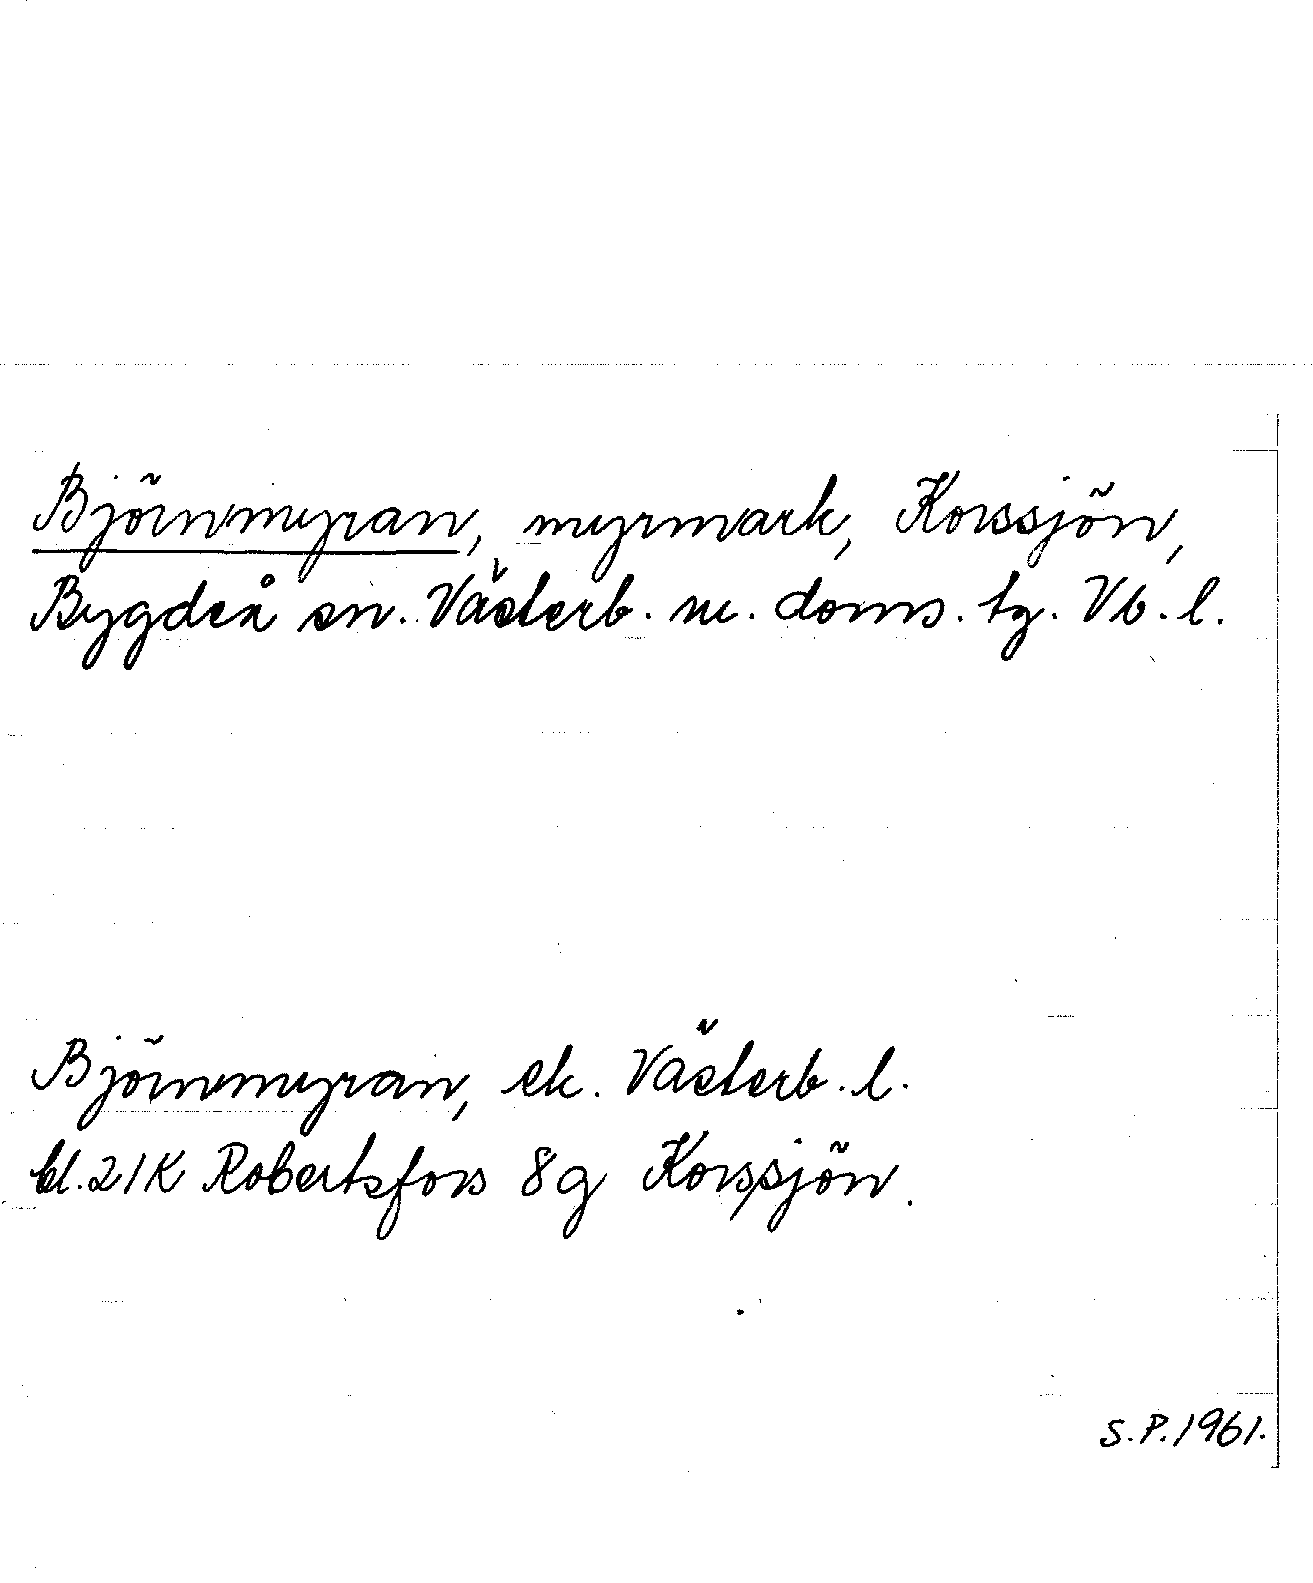 Björnmyran, myrmark, Korssjön,
Bygdeå sn. Västerb. m. doms. tg. Vb. l.
Björnmyran, ek. Västerb. l.
bl. 21K Robertsfors 8g Korssjön.
S.P. 1961.